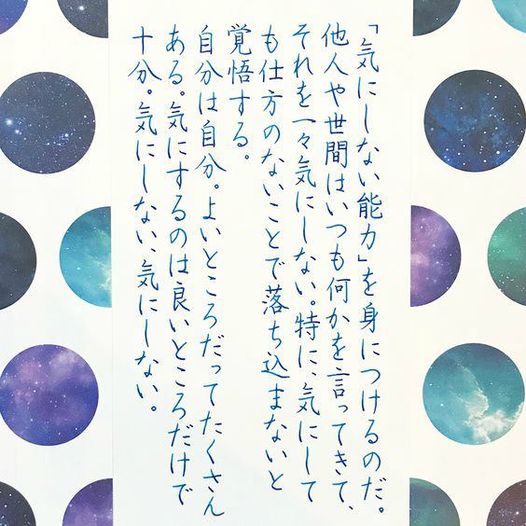 「気にしない能力」を身につけるのだ。
他人や世間はいつも何かを言ってきて、
それを一々気にしない。特に、気にして
も仕方のないことで落ち込まないと
覚悟する。
自分は自分。よいところだってたくさん
ある。気にするのは良いところだけで
十分。気にしない、気にしない。